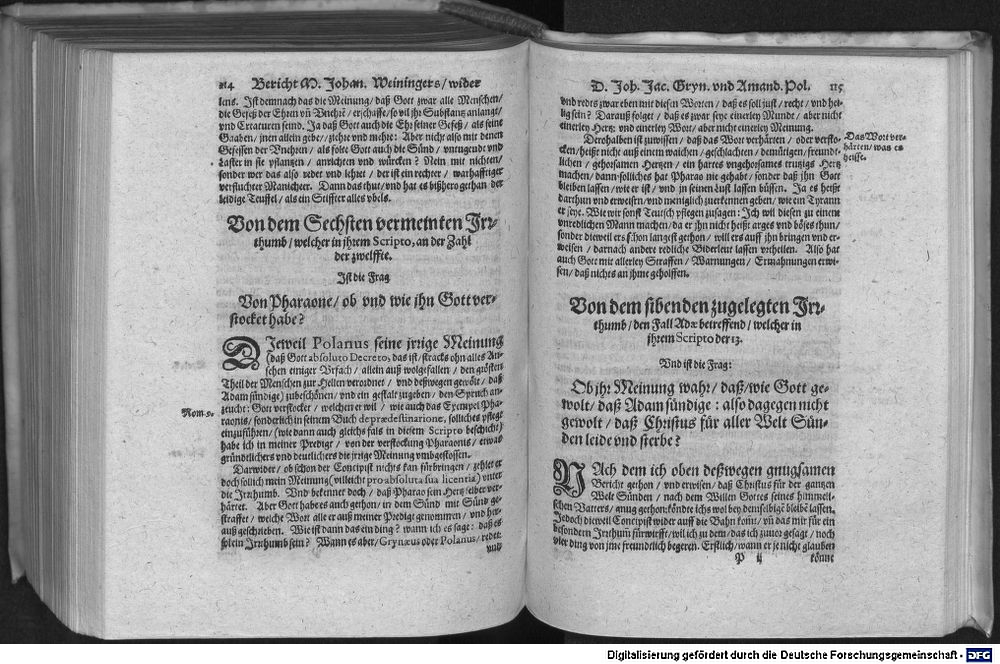 114 Bericht M. Johan. Weiningers / wider
lens. Ist demnach das die Meinung / daß Gott zwar alle Menschen /
die Gefeß der Ehren vñ Vnehrē / erschaffe / so vil jhr Substantz anlangt /
vnd Creaturen seind. Ja daß Gott auch die Ehr seiner Gefeß / als seine
Gaaben / jnen allein gebe / ziehre vnd mehre: Aber nicht also mit denen
Gefessen der Vnehren / als solte Gott auch die Sünd / vntugende vnd
Laster in sie pflantzen / anrichten vnd würcken? Nein mit nichten /
sonder wer das also redet vnd lehret / der ist ein rechter / warhafftiger
verfluchter Manicheer. Dann das thut / vnd hat es bißhero gethan der
leidige Teuffel / als ein Stiffter alles vbels.
Von dem Sechsten vermeinten Irr-
thumb / welcher in jhrem Scripto, an der Zahl
der zwelffte.
Ist die Frag
Von Pharaone / ob vnd wie jhn Gott ver-
stocket habe?
DIeweil Polanus seine jrige Meinung
(daß Gott absoluto Decreto, das ist / stracks ohn alles An-
sehen einiger Vrsach / allein auß wolgefallen / den grösten
Theil der Menschen zur Hellen verordnet / vnd deßwegen gewölt / daß
Adam sündige) zubeschönen / vnd ein gestalt zugeben / den Spruch an-
Rom. 9.
zeucht: Gott verstocket / welchen er wil / wie auch das Exempel Pha-
raonis / sonderlich in seinem Buch de prædestinatione, solliches pflegt
einzuführen / (wie dann auch gleichs fals in disem Scripto beschicht)
habe ich in meiner Predigt / von der verstockung Pharaonis / etwas
gründtlichers vnd deutlichers die jrrige Meinung vmbgestossen.
Darwider / ob schon der Concipist nichts kan fürbringen / zehlet er
doch sollich mein Meinung (villeicht pro absoluta sua licentia) vnter
die Irrthumb. Vnd bekennet doch / daß Pharao sein Hertz selber ver-
härtet. Aber Gott habe es auch gethon / in dem Sünd mit Sünd ge-
straffet / welche Wort alle er auß meiner Predigt genommen / vnd her-
auß geschrieben. Wie ist dann das ein ding? wann ich es sage: daß es
ein Irrthumb sein? Wann es aber / Grynæus oder Polanus / redet
vnd
D. Joh. Jac. Gryn. vnd Amand. Pol. 115
vnd redts zwar eben mit diesen Worten / daß es soll just / recht / vnd hei-
lig sein? Darauß folget / daß es zwar seye einerley Munde / aber nicht
einerley Hertz vnd einerley Wort / aber nicht einerley Meinung.
Derohalben ist zuwissen / daß das Wort verhärten / oder versto-
cken / heißt nicht auß einem waichen / geschlachten / demütigen / freundt-
lichen / gehorsamen Hertzen / ein hartes vngehorsames trutzigs Hertz
machen / dann solliches hat Pharao nie gehabt / sonder daß jhn Gott
bleiben lassen / wie er ist / vnd in seinen Lust lassen büssen. Ja es heißt
darthun vnd erweisen / vnd meniglich zuerkennen geben / wie ein Tyrann
er seye. Wie wir sonst Teutsch pflegen zusagen: Ich wil diesen zu einem
vnredlichen Mann machen / da er jhn nicht heißt arges vnd böses thun /
sonder dieweil ers schon langest gethon / will ers auff jhn bringen vnd er-
weisen / darnach andere redliche Biderleut lassen vrtheilen. Also hat
auch Gott mit allerley Straffen / Warnungen / Ermahnungen erwi-
sen / daß nichts an jhme geholffen.
Das Wort ver-
härten / was es
heisse.
Von dem sibenden zugelegten Irr-
thumb / den Fall Adæ betreffend / welcher in
jhrem Scripto der 13.
Vnd ist die Frag:
Ob jhr Meinung wahr / daß / wie Gott ge-
wolt / daß Adam sündige: also dagegen nicht
gewolt / daß Christus für aller Welt Sün-
den leide vnd sterbe?
NAch dem ich oben deßwegen gnugsamen
Bericht gethon / vnd erwisen / daß Christus für der gantzen
Welt Sünden / nach dem Willen Gottes seines himmeli-
schen Vatters / gnug gethon: köndte ichs wol bey demselbigē bleibē lassen.
Jedoch dieweil Concipist wider auff die Bahn komt / vñ das mir für ein
besondern Irrthum fürwirfft / wil ich zu dem / das ich zuuor gesagt / noch
vier ding von jme freundtlich begeren. Erstlich / wann er je nicht glauben
P ij könne
Digitalisierung gefördert durch die Deutsche Forschungsgemeinschaft - DFG